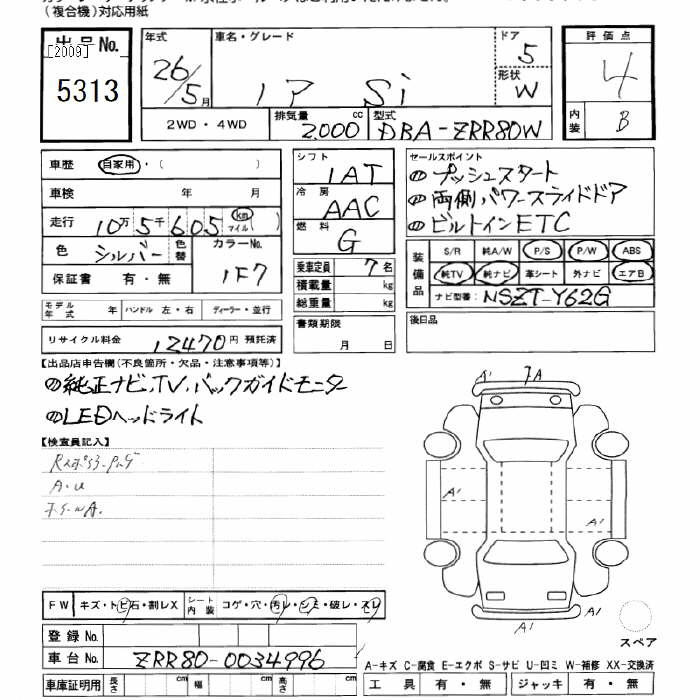 (複合機)対応用紙
出品No.
[2009]
5313
年式 26/5月
車名・グレード ノア Si
ドア 5
形状 W
2WD・4WD
排気量 2,000 cc
型式 DBA-ZRR80W
評価点 4
内装 B
車歴 自家用・( )
車検 年 月
走行 10万5千605 km マイル
色 シルバー 色替 カラーNo. 1F7
保証書 有・無
モデル年式 年 ハンドル 左・右 ディーラー・並行
リサイクル料金 12470円 預託済
シフト 1AT
冷房 AAC
燃料 G
乗車定員 7名
積載量 kg
総重量 kg
書類期限
月 日
セールスポイント
プッシュスタート
両側パワースライドドア
ビルトインETC
装備品
S/R 純A/W P/S P/W ABS
純TV 純ナビ 革シート 外ナビ エアB
ナビ型番: NSZT-Y62G
後日品
【出品店申告欄(不良箇所・欠品・注意事項等)】
純正ナビ、TV、バックガイドモニター
LEDヘッドライト
【検査員記入】
A・U
A' A
A'
A'
A'
FW キズ・トビ石・割レX シート内装 コゲ・穴・汚レ・シミ・破レ・スレ
登録No.
車台No. ZRR80-0034996
車庫証明用 長さ cm 幅 cm 高さ cm
スペア
A-キズ C-腐食 E-エクボ S-サビ U-凹ミ W-補修 XX-交換済
工具 有・無 ジャッキ 有・無